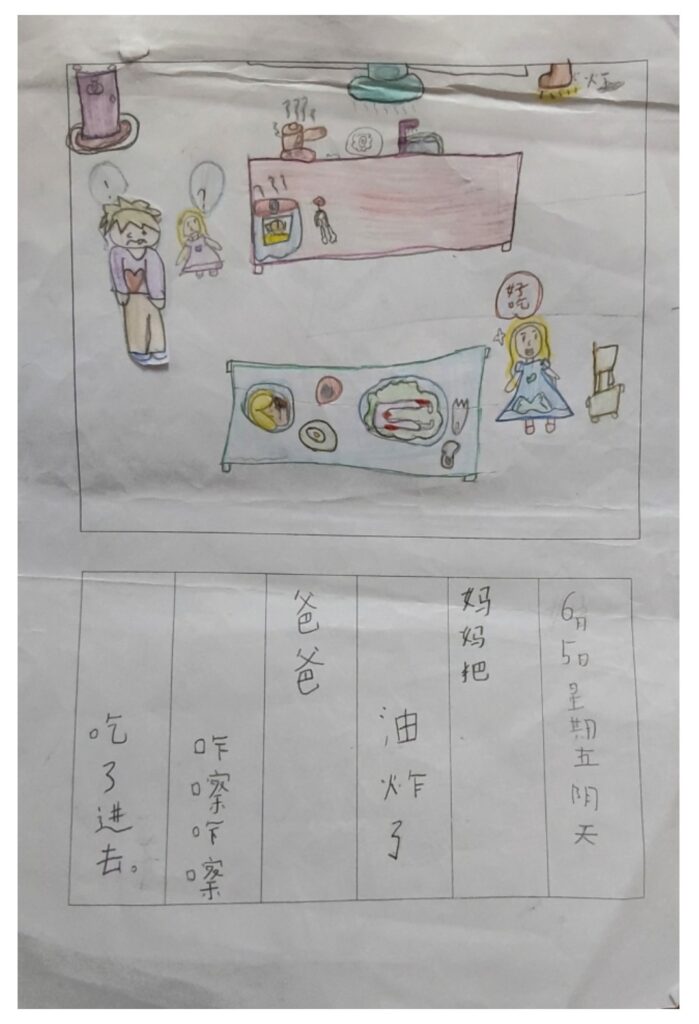 !
?
好吃
6月5日星期五阴天
妈妈把
油炸了
爸爸
咋嚓咋嚓
吃了进去。